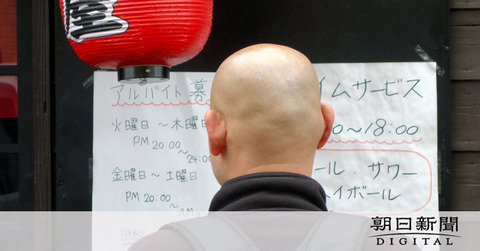 アルバイト募
火曜日～木曜日
PM 20:00
～24:00
金曜日～土曜日
PM 20:00
～
イムサービス
0～18:00
ール・サワー
ハイボール
朝日新聞
DIGITAL